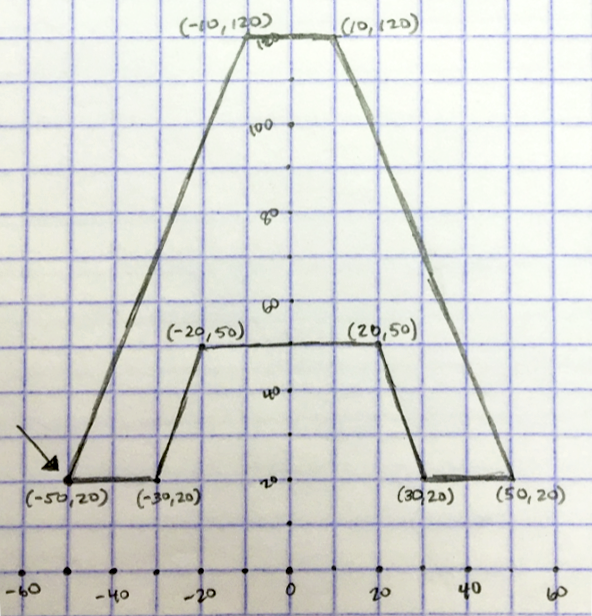 (-10,120) (10,120)
120
100
80
60
(-20,50) (20,50)
40
20
(-50,20) (-30,20) (30,20) (50,20)
-60 -40 -20 0 20 40 60